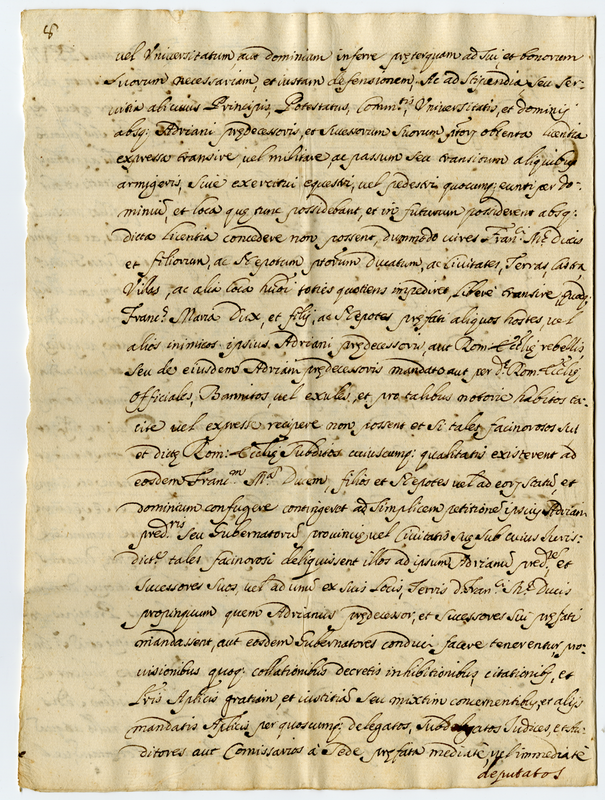 8
vel Universitatum aut dominium inferre pręterquam ad sui, et bonorum
suorum necessariam, et iustam defensionem, Ac ad Stipendia, seu ser-
vitia alicuius Principis, Potestatus, Comm.tis, Universitatis, et Dominij
absq; Adriani prędecessoris, et Successorum suorum obtenta licentia
expressa transire vel militare, ac passum seu transitum aliquibus
armigeris, sive exercitui equestri, vel pedestri quocumq; eunti per Do-
minia, et loca quę tunc possidebant, et in futurum possiderent absq;
dicta licentia concedere non possent, dummodo vires Fran.ci M.ę Ducis
et filiorum, ac Nepotum ptorum Ducatum, ac Civitates, Terras, Castra
Villas, ac alia loca toties quotiens impediret, libere transire,
Franc.s Maria Dux, et filij, ac Nepotes pręfati aliquos hostes, vel
alios inimicos ipsius Adriani prędecessoris, aut Rom. Ecclię rebelles,
seu de eiusdem Adriani prędecessoris mandato aut per d. Rom. Ecclię
Officiales, Bannitos, vel exules, et pro talibus notorie habitos ta-
cite vel expresse recipere non possent et si tales facinorosos sui
et dictę Rom: Ecclię subditos cuiuscumq; qualitatis existerent ad
eosdem Franc.m M.am Ducem, filios et Nepotes vel ad eorum statum, et
dominium confugere contingeret ad simplicem petitionem ipsius Adriani
pred.ris seu Gubernatoris provincię, vel Civitatis sub cuius Iuris-
dict.e tales facinorosi deliquissent illos ad ipsum Adrianum pred.rem, et
Successores suos, vel ad unum ex suis Locis, Terris d. Fran.ci M.ę Ducis
propinquum quem Adrianus prędecessor, et Successores sui pręfati
mandassent, aut eosdem Gubernatores conduci facere tenerentur, pro-
visionibus quoq; collationibus decretis inhibitionibus, citationib; et
Lris Aplicis gratiam, et iustitiam seu mixtim concernentibus, et alijs
mandatis Aplicis per quoscumq; delegatos, subdelegatos Iudices, et Au-
ditores aut Comissarios à Sede pręfata mediatè, vel immediatè
deputatos